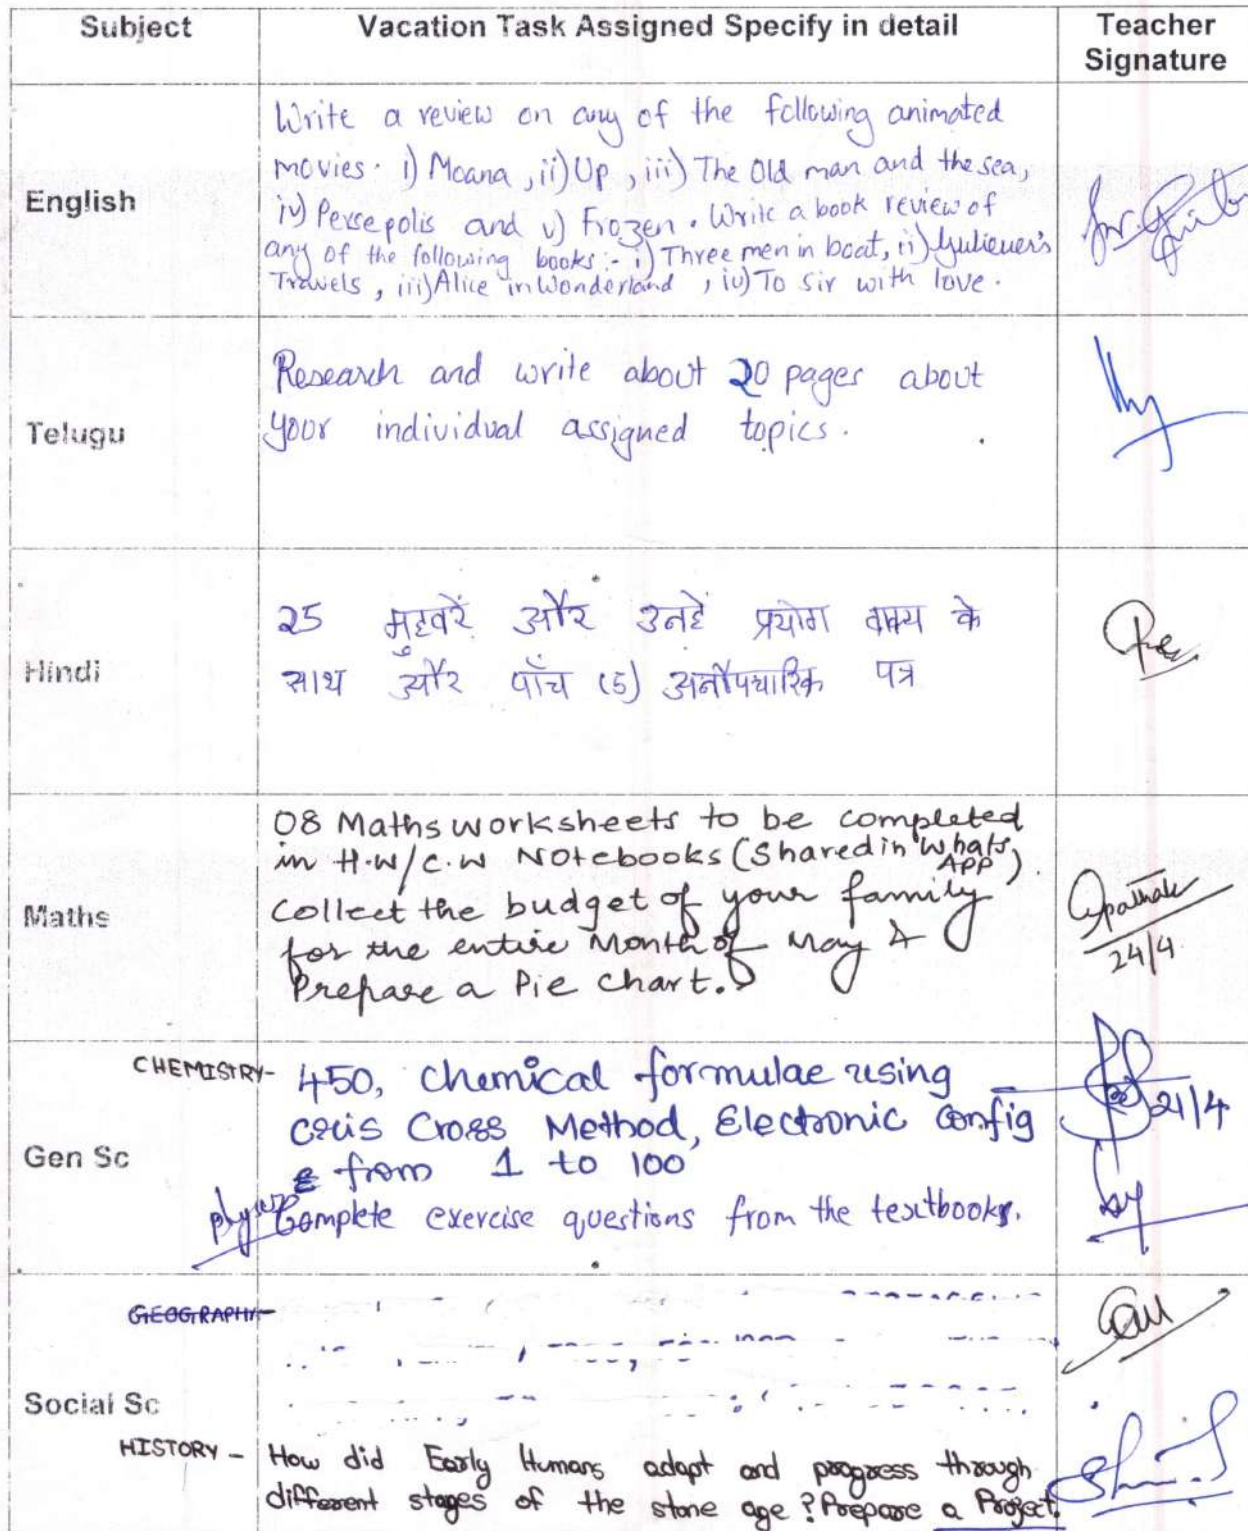 Subject Vacation Task Assigned Specify in detail Teacher Signature
English
Write a review on any of the following animated
movies. i) Moana, ii) Up, iii) The Old man and the sea,
iv) Persepolis and v) Frozen. Write a book review of
any of the following books:- i) Three men in boat, ii) Guliever's
Travels, iii) Alice in Wonderland, iv) To Sir with love.
Telugu
Research and write about 20 pages about
your individual assigned topics.
Hindi
25 मुहवरें और उनहें प्रयोग वाक्य के
साथ और पाँच (5) अनौपचारिक पत्र
Maths
08 Maths worksheets to be completed
in H.W/C.W Notebooks (Shared in Whats APP).
Collect the budget of your family
for the entire Month of May &
Prepare a Pie Chart.
24/4
Gen Sc
CHEMISTRY- 450, Chemical formulae using
criis Cross Method, Electronic config
from 1 to 100
21/4
physics Complete exercise questions from the textbooks.
Social Sc
GEOGRAPHY-
HISTORY - How did Early Humans adapt and progress through
different stages of the stone age? Prepare a Project.